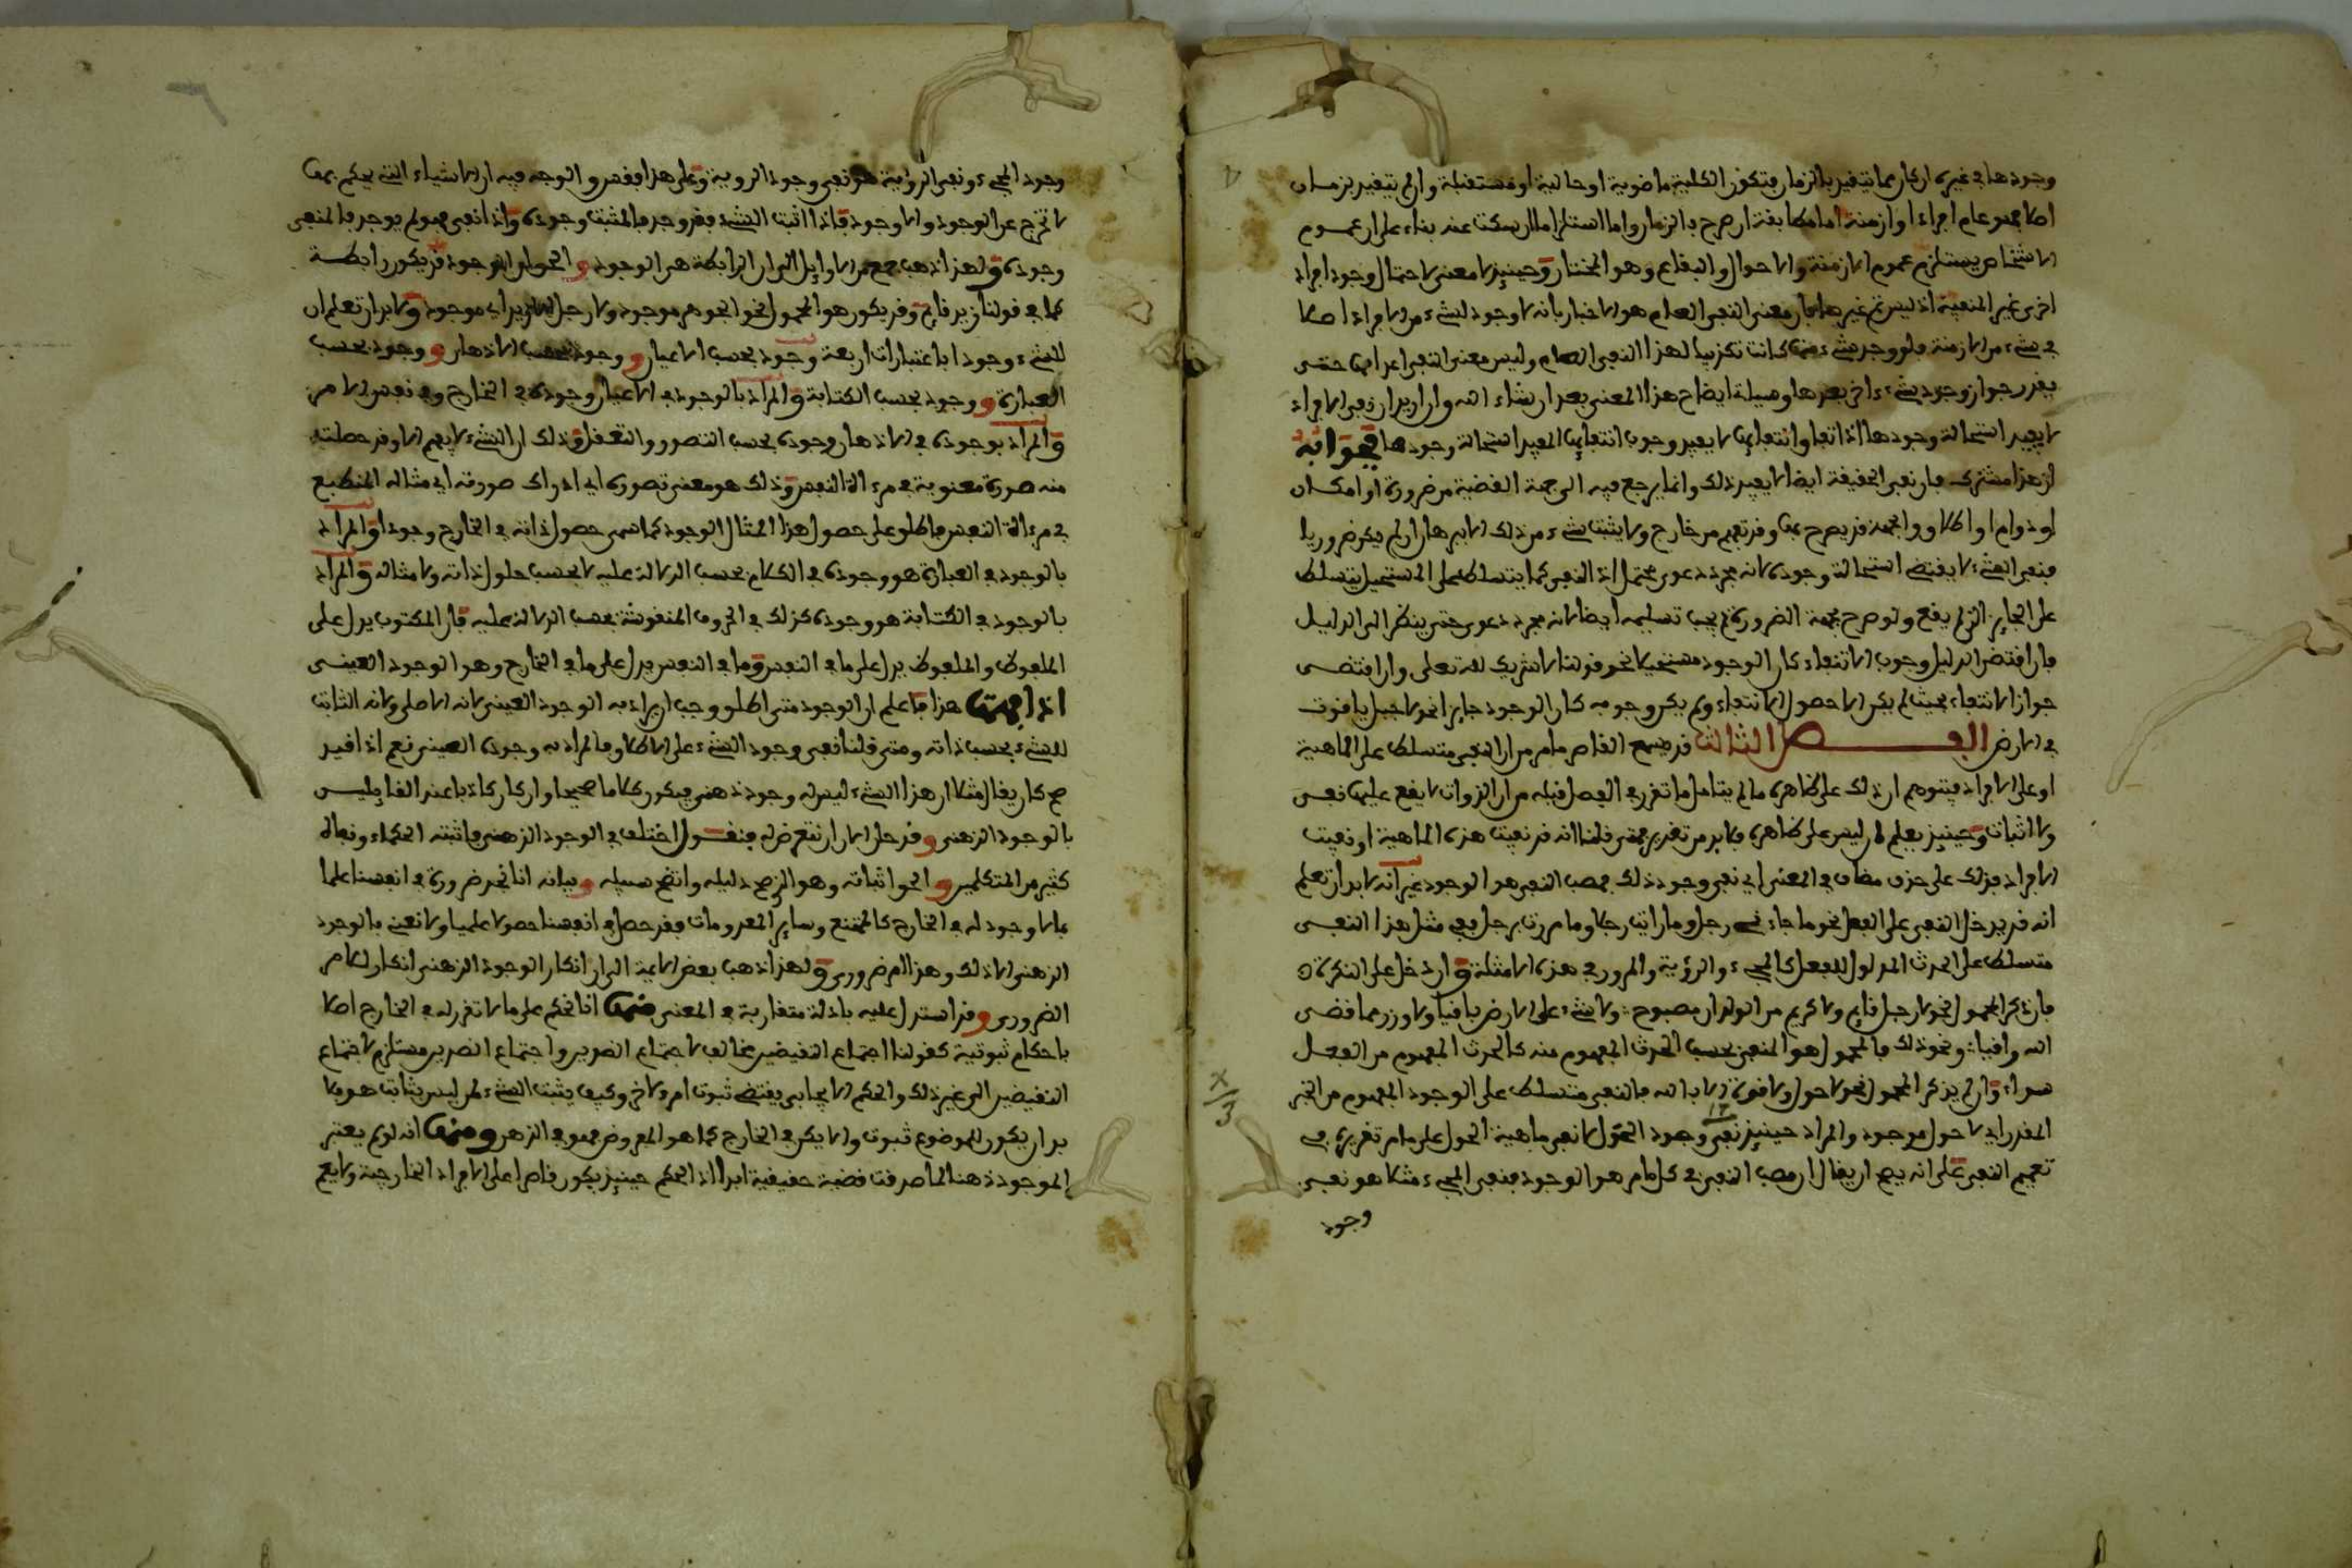 وجودها في غيره ان كان مما يتغير بالزمان فتكون الكلية ماضوية او حالية او مستقبلة وان لم يتغير بزمان
اصلا فهو عام افرادا وازمنة اما مطابقة ان صرح بالزمان واما استلزاما ان سكت عنه بناء على ان عموم
الاشخاص يستلزم عموم الازمنة والاحوال والبقاع وهو المختار وحينئذ لا معنى لاحتمال وجود افراد
اخرى غير المنفية اذ ليس ثم غيرها فان معنى النفي العام هو الاخبار بانه لا وجود لشيء من الافراد اصلا
في شيء من الازمنة فلو وجد شيء منها كانت تكذيبا لهذا النفي العام وليس معنى النفي اعدامها حتى
يقدر جواز وجود شيء ءاخر بعدها وسيلة ايضاح هذا المعنى بعد ان شاء الله وان اريد ان نفي الافراد
لا يفيد استحالة وجودها اذ انتفاؤها لا يفيد وجوب انتفائها المفيد استحالة وجودها فجوابه
ان هذا مشترك فان نفي الحقيقة ايضا لا يفيد ذلك وانما يرجع فيه الى جهة القضية من ضرورة او امكان
او دوام او اطلاق والجهة قد يصرح بها وقد تفهم من خارج ولا يثبت شيء من ذلك الا ببرهان ان لم يكن ضروريا
فنفي الشيء لا يقتضي استحالة وجوده لانه مجرد دعوى محتمل اذ النفي كما يتسلط على المستحيل يتسلط
على الجائز الذي لم يقع ولو صرح بجهة الضرورة لم يجب تسليمه ايضا لانه مجرد دعوى حتى ينظر الى الدليل
فان اقتضى الدليل وجوب الانتفاء كان الوجود مستحيلا نحو قولنا لا شريك لله تعلى وان اقتضى
جواز الانتفاء بحيث لم يكن الا حصول الانتفاء ولم يكن وجوبه كان الوجود جايزا نحو لا جبل ياقوت
في الارض الفصل الثالث قد يسمع القاصر ما مر من ان النفي متسلط على الماهية
او على الافراد فيتوهم ان ذلك على ظاهره ما لم يتامل ما تقرر في الفصل قبله من ان الذوات لا يقع عليها نفي
ولا اثبات وحينئذ يعلم انه ليس على ظاهره فلا بد من تقدير فمتى قلنا انه قد نفيت هذه الماهية او نفيت
الافراد فذلك على حذف مضاف في المعنى اي نفي وجود ذلك فمصب النفي هو الوجود غير انه لا بد ان تعلم
انه قد يدخل النفي على الفعل نحو ما جاءني رجل وما رايت رجلا وما مررت برجل ففي مثل هذا النفي
متسلط على الحدث المدلول للفعل كالمجيء والرؤية والمرور في هذه الامثلة وان دخل على النكرة
فان ذكر المحمول نحو لا رجل قايم ولا كريم من الولدان مصبوح ولا شيء على الارض باقيا ولا وزر مما قضى
الله واقيا ونحو ذلك فالمحمول هو المنفي بحسب الحدث المفهوم منه كالحدث المفهوم من الفعل
سواء وان لم يذكر المحمول نحو لا حول ولا قوة الا بالله فالنفي متسلط على الوجود المفهوم من الخبر
المقدر اي لا حول موجود والمراد حينئذ نفي وجود الحول لا نفي ماهية الحول على ما مر تقريره في
تعميم النفي على انه يصح ان يقال ان مصب النفي في كل ما مر هو الوجود فنفي المجيء مثلا هو نفي
وجود
وجود المجيء ونفي الرؤية هو نفي وجود الروية وعلى هذا فقس والوجه فيه ان الاشياء التي يحكم بها
لا تخرج عن الوجود والا وجود فاذا اثبت الشيء فقد وجد فالمثبت وجوده واذا نفي فهو لم يوجد فالمنفي
وجوده ولهذا ذهب جمع من الاوايل الى ان الرابطة هي الوجود والحق ان الوجود قد يكون رابطة
كما في قولنا زيد قايم وقد يكون هو المحمول نحو الجوهر موجود ولا رجل اي موجود ولا بد ان تعلم ان
للشيء وجودا باعتبارات اربعة وجود بحسب الاعيان ووجود بحسب الاذهان ووجود بحسب
العبارة ووجود بحسب الكتابة والمراد بالوجود في الاعيان وجوده في الخارج وفي نفس الامر
والمراد بوجوده في الاذهان وجوده بحسب التصور والتعقل وذلك ان الشيء لا يفهم الا وقد حصلت
منه صورة معنوية في مرءاة النفس وذلك هو معنى تصوره اي ادراك صورته اي مثاله المنطبع
في مرءاة النفس فاطلق على حصول هذا المثال الوجود كما سمي حصول ذاته في الخارج وجودا والمراد
بالوجود في العبارة هو وجوده في الكلام بحسب الدلالة عليه لا بحسب حلول ذاته ولا مثاله والمراد
بالوجود في الكتابة هو وجوده كذلك في الحروف المنقوشة بحسب الدلالة عليه فان المكتوب يدل على
الملفوظ والملفوظ يدل على ما في النفس وما في النفس يدل على ما في الخارج وهو الوجود العيني
اذا فهمت هذا فاعلم ان الوجود متى اطلق وجب ان يراد به الوجود العيني لانه الاصلي ولانه الثابت
للشيء بحسب ذاته ومتى قلنا نفي وجود الشيء على الاطلاق فالمراد به وجوده العيني نعم اذا قيد
صح كان يقال مثلا ان هذا الشيء ليس له وجود ذهني فيكون كلاما صحيحا وان كان كاذبا عند القايلين
بالوجود الذهني وقد حان الان ان نتعرض له فنقول اختلف في الوجود الذهني فاثبته الحكماء ونفاه
كثير من المتكلمين والحق اثباته وهو الذي صح دليله واتضح سبيله وبيانه انا نجد ضرورة في انفسنا علما
بما لا وجود له في الخارج كالممتنع وساير المعدومات فقد حصل في انفسنا حصولا علميا ولا نعني بالوجود
الذهني الا ذلك وهذا امر ضروري ولهذا ذهب بعض الايمة الى ان انكار الوجود الذهني انكار للامر
الضروري وقد استدل عليه بادلة متقاربة في المعنى منها انا نحكم على ما لا تقرر له في الخارج اصلا
باحكام ثبوتية كقولنا اجتماع النقيضين مخالف لاجتماع الضدين واجتماع الضدين مستلزم لاجتماع
النقيضين الى غير ذلك والحكم الايجابي يقتضي ثبوت امر لاخر وكيف يثبت الشيء لما ليس بثابت هو فلا
بد ان يكون للموضوع ثبوت والا يكن في الخارج كما هو المفروض فهو في الذهن ومنها انه لو لم يعتبر
الموجود ذهنا لما صدقت قضية حقيقية ابدا اذ الحكم حينئذ يكون قاصرا على الافراد الخارجية ولا يعم